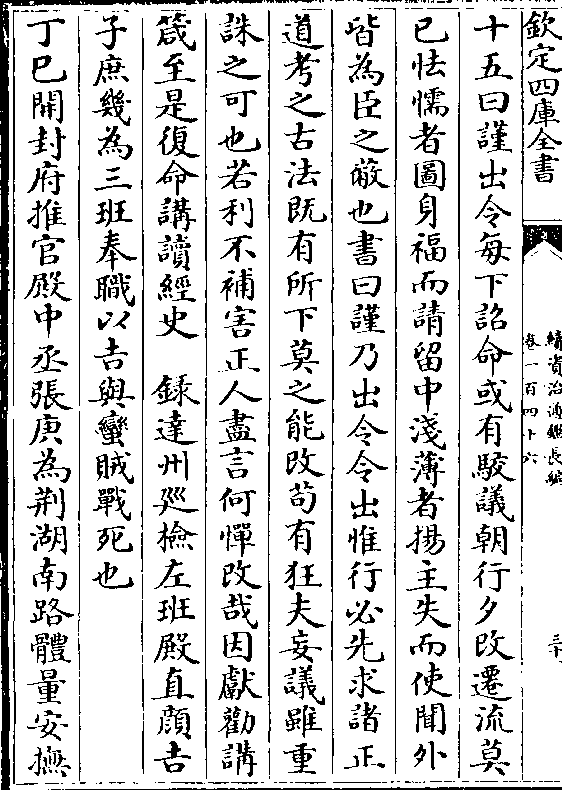 欽定四庫全書
續資治通鑑長編
卷一百四十六
十五曰謹出令每下詔命或有駮議朝行夕改遷流莫
已怯懦者圖身福而請留中淺薄者揚主失而使聞外
皆為臣之敝也書曰謹乃出令令出惟行必先求諸正
道考之古法既有所下莫之能改苟有狂夫妄議雖重
誅之可也若利不補害正人盡言何憚改哉因獻勸講
箴至是復命講讀經史 録達州廵檢左班殿直顔吉
子庶幾為三班奉職以吉與蠻賊戰死也
丁巳開封府推官殿中丞張庚為荆湖南路體量安撫